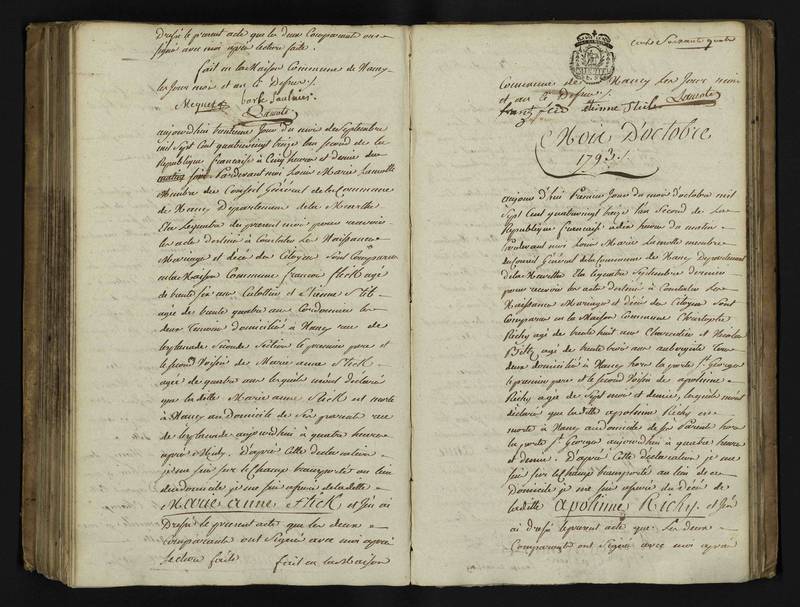 Dressé le present acte que les deux Comparant ont
signé avec moi après lecture faite.
fait en la Maison Commune de Nancy
les Jours mois et an ci Dessus
Mequet bark Saulnier.
Lamotte
aujourd'hui trentieme Jour du mois de Septembre
mil Sept Cent quatrevingt treize l'an second de la
Republique francaise à Cinq heures et demie du
matin soir Pardevant moi Louis Marie Lamotte
Membre du Conseil Général de la Commune
de Nancy Département de la Meurthe
Elu le quatre du present mois pour recevoir
les acte destiné à Constater les Naissance
Mariage et décé des Citoyen Sont Comparu
en la Maison Commune francois Stick agé
de trente six ans Culottier et Etienne Stib
agé de trente quatre ans Cordonnier les
deux Temoin domicilié à Nancy rue de
lesplanade Seconde Section le premier pere et
le second Voisin de Marie anne Stick
agée de quatre ans lesquels m'ont Déclaré
que la ditte Marie anne Stick est morte
à Nancy au Domicile de Ses parent rue
de lesplanade aujourd'hui à quatre heures
après Midy. D'après Cette déclaration
je me suis sur le Champ transporté au lieu
de ce domicile je me suis assuré de la ditte
Marie anne Stick et J'en ai
Dressé le present acte que les deux
Comparants ont Signé avec moi après
lecture faite fait en la Maison
cent Soixante quatre
Commune de Nancy les Jours mois
et an ci Dessus
frantz etienne Stib Lamotte
Mois D'octobre
1793
aujourd'hui Premier Jour du mois d'octobre mil
Sept Cent quatrevingt treize l'an Second de la
Republique francaise à dix heures du matin
Pardevant moi Louis Marie Lamotte membre
du Conseil Général de la Commune de Nancy Departement
de la Meurthe Elu le quatre Septembre dernier
pour recevoir les acte destiné à Constater les
Naissance Mariage et décé des Citoyen Sont
Comparu en la Maison Commune Christophe
Richy agé de trente huit ans Charcutier et Nicolas
agé de trente trois ans aubergiste tous
deux domicilié à Nancy hors la porte St. George
le premier pere et le second Voisin de apolinne
Richy agée de Sept mois et demie, lesquels m'ont
déclaré que la ditte apolinne Richy est
morte à Nancy au domicile de ses Parents hors
la porte St. George aujourd'hui à quatre heures
et demie. D'après Cette Déclaration je me
suis sur le Champ transporté au lieu de ce
Domicile je me suis assuré du décé de
la ditte apolinne Richy. et J'en
ai dressé le present acte que les deux
Comparants ont Signé avec moi après